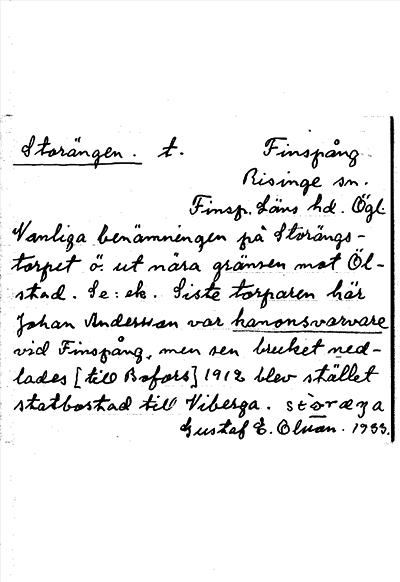 Storängen. t. Finspång
Risinge sn.
Finsp. Läns hd. Ögl
Vanliga benämningen på Storängs-
torpet ö. ut nära gränsen mot Öl-
stad. Se: ek. Siste torparen här
Johan Andersson var kanonsvarvare
vid Finspång, men sen bruket ned-
lades [till Bofors] 1912 blev stället
statbostad till Viberga.
Gustaf E. Olsson. 1933.